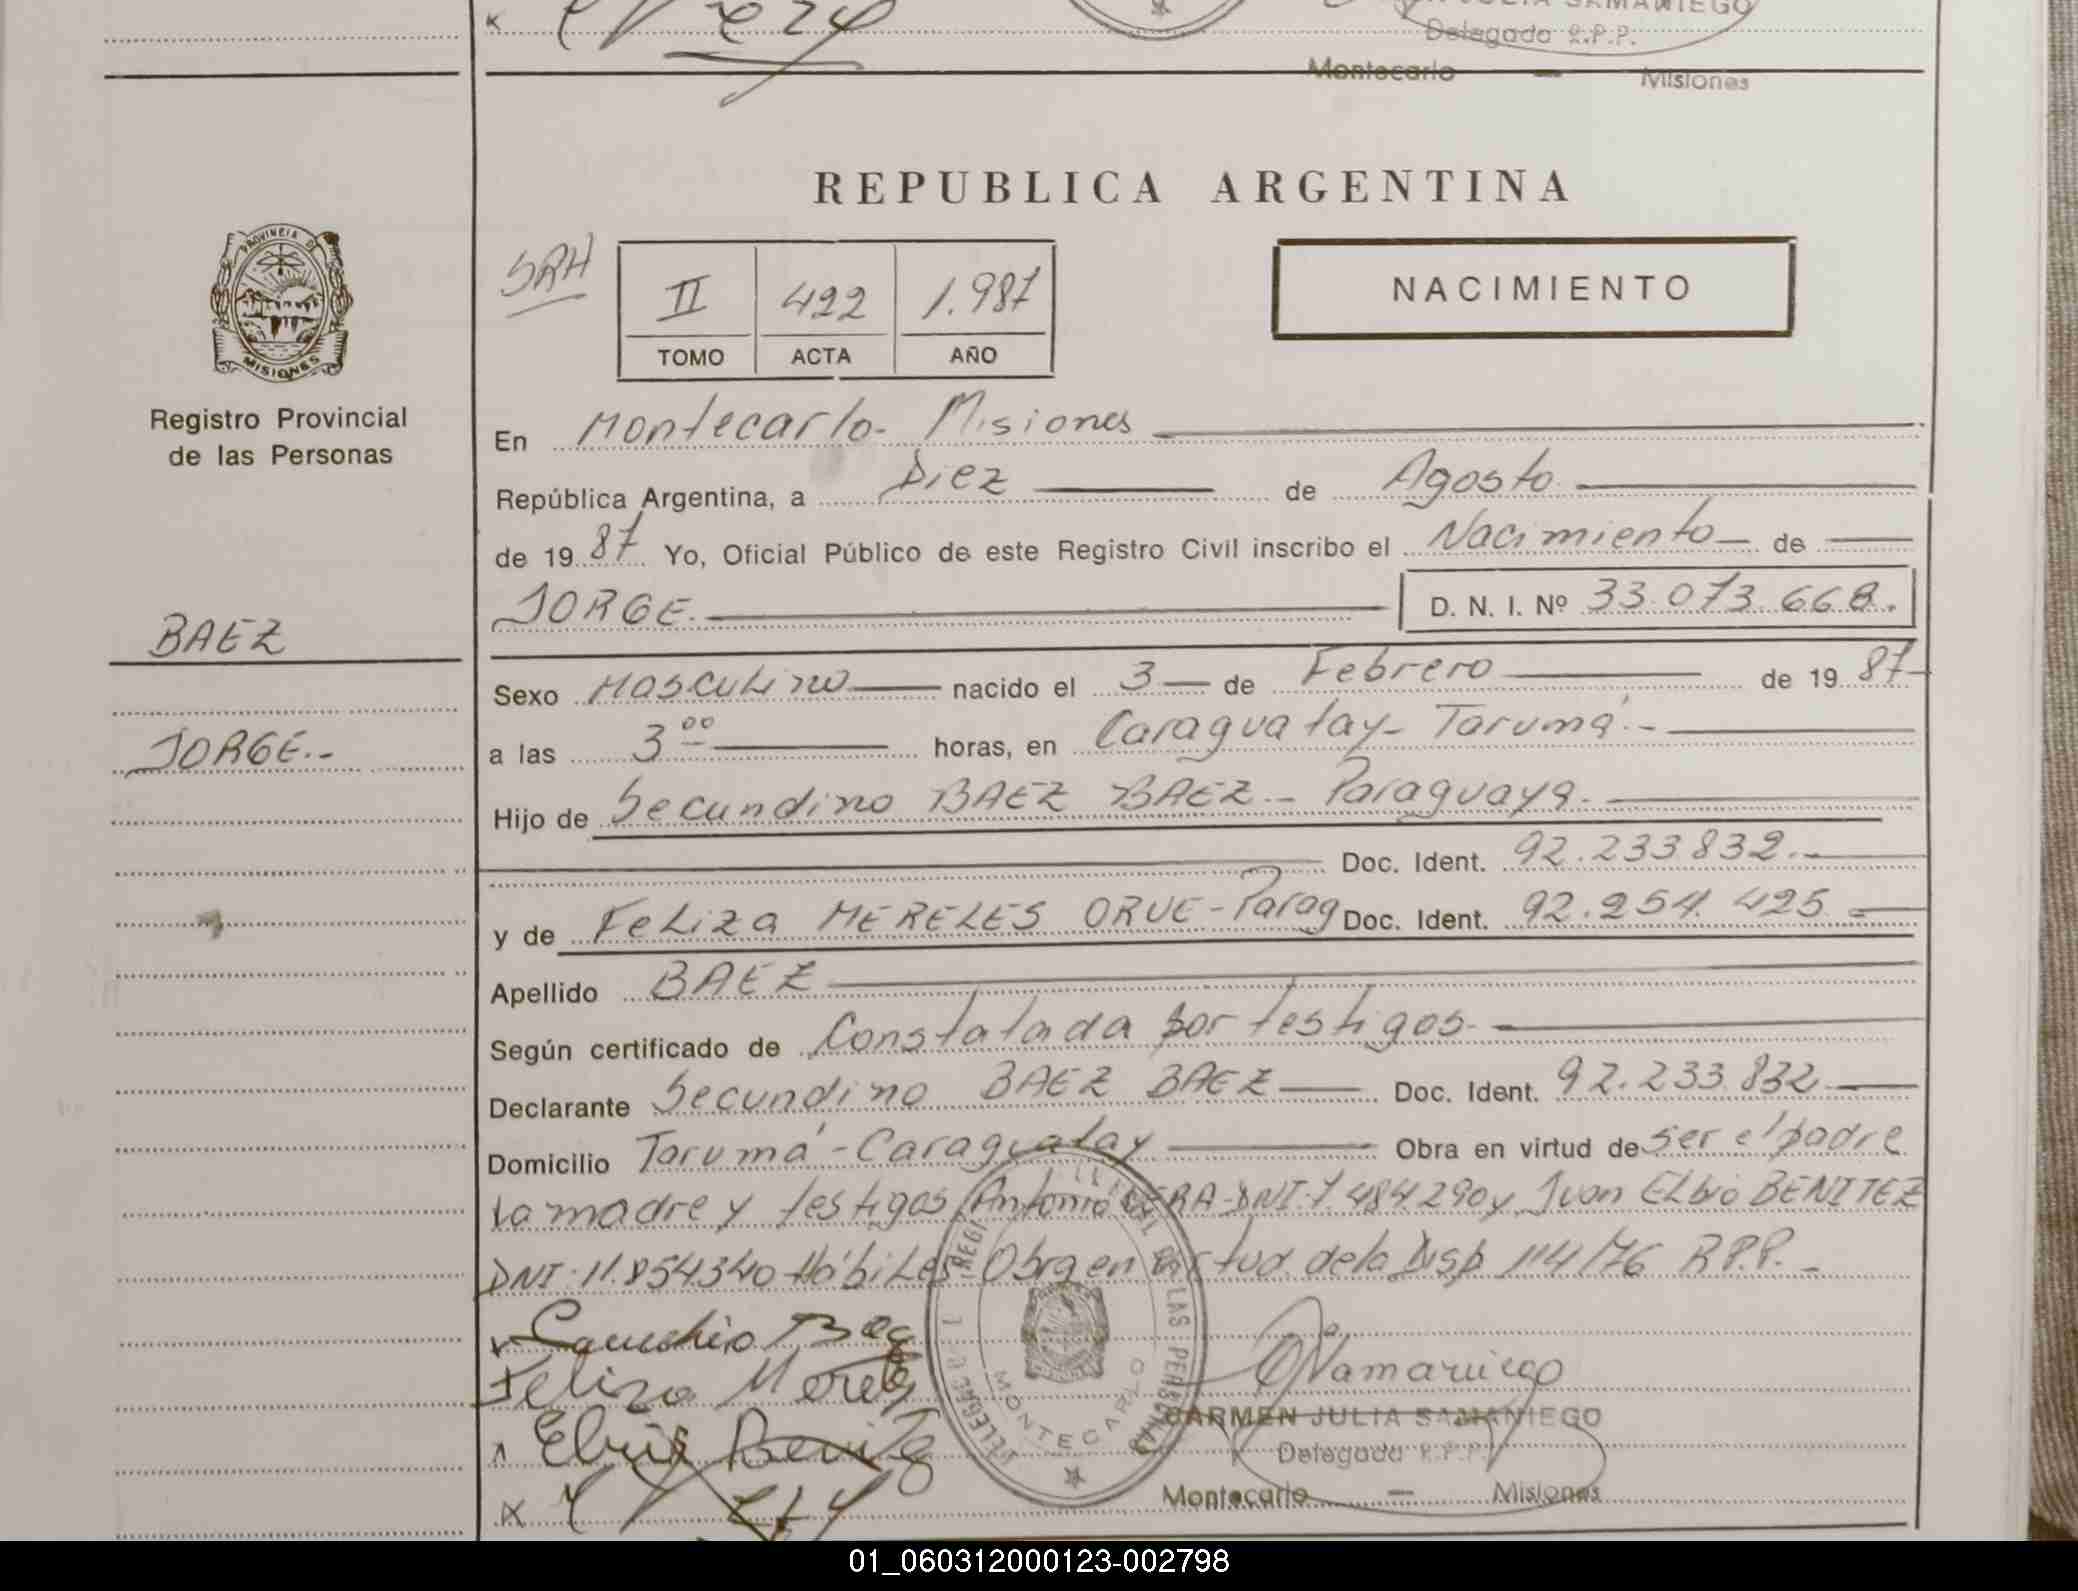 SAMANIEGO
Delegada R.P.P.
Montecarlo — Misiones
REPUBLICA ARGENTINA
PROVINCIA DE
MISIONES
Registro Provincial
de las Personas
SRH
II 422 1.987
TOMO ACTA AÑO
NACIMIENTO
En Montecarlo- Misiones
República Argentina, a Diez de Agosto
de 19 87 Yo, Oficial Público de este Registro Civil inscribo el Nacimiento de
JORGE. D. N. I. Nº 33.073.668.
BAEZ
JORGE.-
Sexo Masculino nacido el 3 de Febrero de 19 87
a las 3 00 horas, en Caraguatay- Tarumá.-
Hijo de Secundino BAEZ BAEZ - Paraguaya.
Doc. Ident. 92.233.832.-
y de Feliza MERELES ORUE - Parag Doc. Ident. 92.254.425
Apellido BAEZ
Según certificado de Constatada por testigos.
Declarante Secundino BAEZ BAEZ Doc. Ident. 92.233.832
Domicilio Tarumá - Caraguatay Obra en virtud de ser el padre
la madre y testigos Antonio VERA-DNI-7.484.290 y Juan Elbio BENITEZ
DNI-11.854340 Hábiles Obra en virtud de la Disp 114/76 R.P.P.-
Feliza Mereles
DE LAS PERSONAS
MONTECARLO
Samaniego
CARMEN JULIA SAMANIEGO
Delegada R.P.P.
Montecarlo — Misiones
01_060312000123-002798